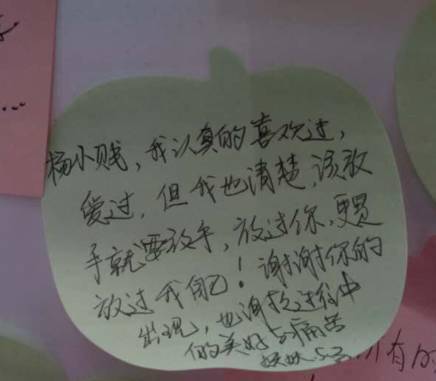 杨小贱，我认真的喜欢过，
爱过，但我也清楚，该放
手就要放手，放过你，更是
放过我自己！谢谢你的
出现，也谢授过往中
的美好与痛苦
所有的